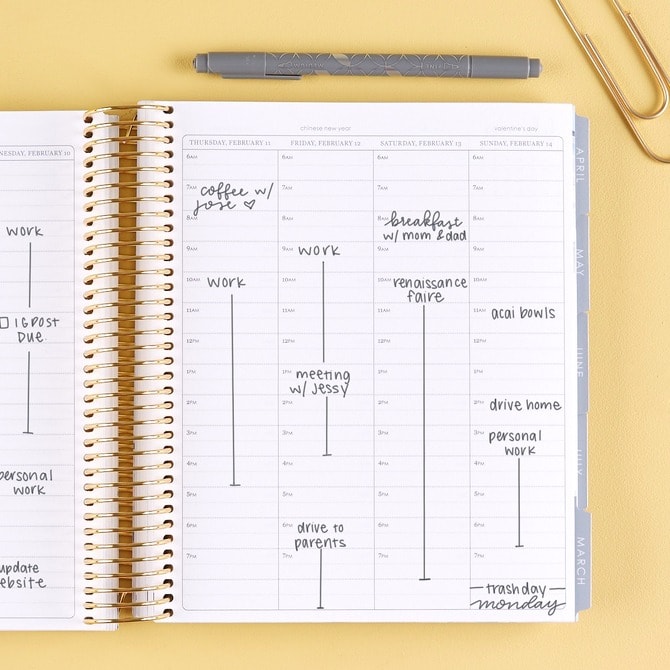 NESDAY, FEBRUARY 10
work
IG POST
DUE
personal
work
update
ebsite
chinese new year
valentine's day
THURSDAY, FEBRUARY 11
6AM
7AM
coffee w/
jose ♡
8AM
9AM
10AM work
11AM
12PM
1PM
2PM
3PM
4PM
5PM
6PM
7PM
FRIDAY, FEBRUARY 12
6AM
7AM
8AM
9AM work
10AM
11AM
12PM
1PM meeting
w/ Jessy
2PM
3PM
4PM
5PM
6PM drive to
parents
7PM
SATURDAY, FEBRUARY 13
6AM
7AM
8AM breakfast
w/ mom & dad
9AM
10AM renaissance
faire
11AM
12PM
1PM
2PM
3PM
4PM
5PM
6PM
7PM
SUNDAY, FEBRUARY 14
6AM
7AM
8AM
9AM
10AM
11AM acai bowls
12PM
1PM
2PM drive home
3PM personal
work
4PM
5PM
6PM
7PM
trash day
monday
APRIL
MAY
JUNE
JULY
MARCH